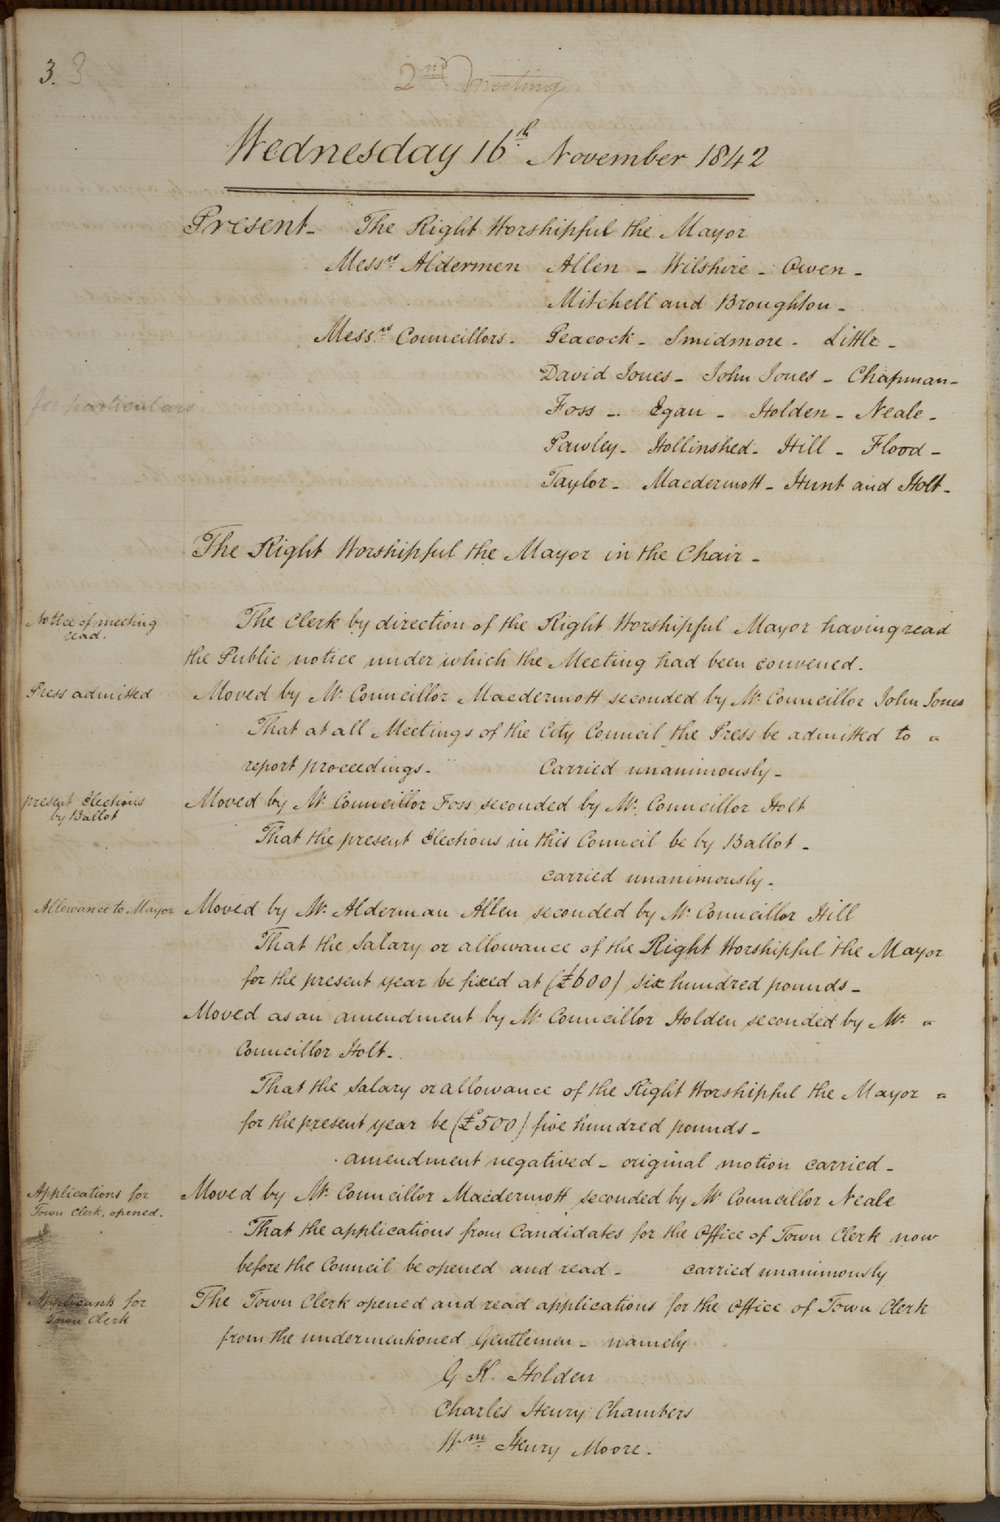 3. 3
2nd meeting
Wednesday 16th November 1842
Present - The Right Worshipful the Mayor
Messrs Aldermen Allen - Wilshire - Owen -
Mitchell and Broughton -
Messrs Councillors - Peacock - Smidmore - Little -
David Jones - John Jones - Chapman -
for particulars
Foss - Egan - Holden - Neale -
Pawley - Hollinshed - Hill - Flood -
Taylor - Macdermott - Hunt and Holt -
The Right Worshipful the Mayor in the Chair -
Notice of meeting
read.
The Clerk by direction of the Right Worshipful Mayor having read
the Public notice under which the Meeting had been convened.
Press admitted
Moved by Mr. Councillor Macdermott seconded by Mr. Councillor John Jones
That at all Meetings of the City Council the Press be admitted to "
report proceedings - Carried unanimously -
present Elections
by Ballot
Moved by Mr. Councillor Foss seconded by Mr. Councillor Holt
That the present Elections in this Council be by Ballot -
carried unanimously -
Allowance to Mayor
Moved by Mr. Alderman Allen seconded by Mr. Councillor Hill
That the Salary or allowance of the Right Worshipful the Mayor
for the present year be fixed at (£600) six hundred pounds -
Moved as an amendment by Mr. Councillor Holden seconded by Mr. "
Councillor Holt -
That the Salary or allowance of the Right Worshipful the Mayor "
for the present year be (£500) five hundred pounds -
amendment negatived - original motion carried -
Applications for
Town Clerk, opened.
Moved by Mr. Councillor Macdermott seconded by Mr. Councillor Neale
That the applications from Candidates for the Office of Town Clerk now
before the Council be opened and read - carried unanimously
Applicants for
Town Clerk
The Town Clerk opened and read applications for the Office of Town Clerk
from the undermentioned Gentlemen - namely
G K. Holden
Charles Henry Chambers
Wm Henry Moore.